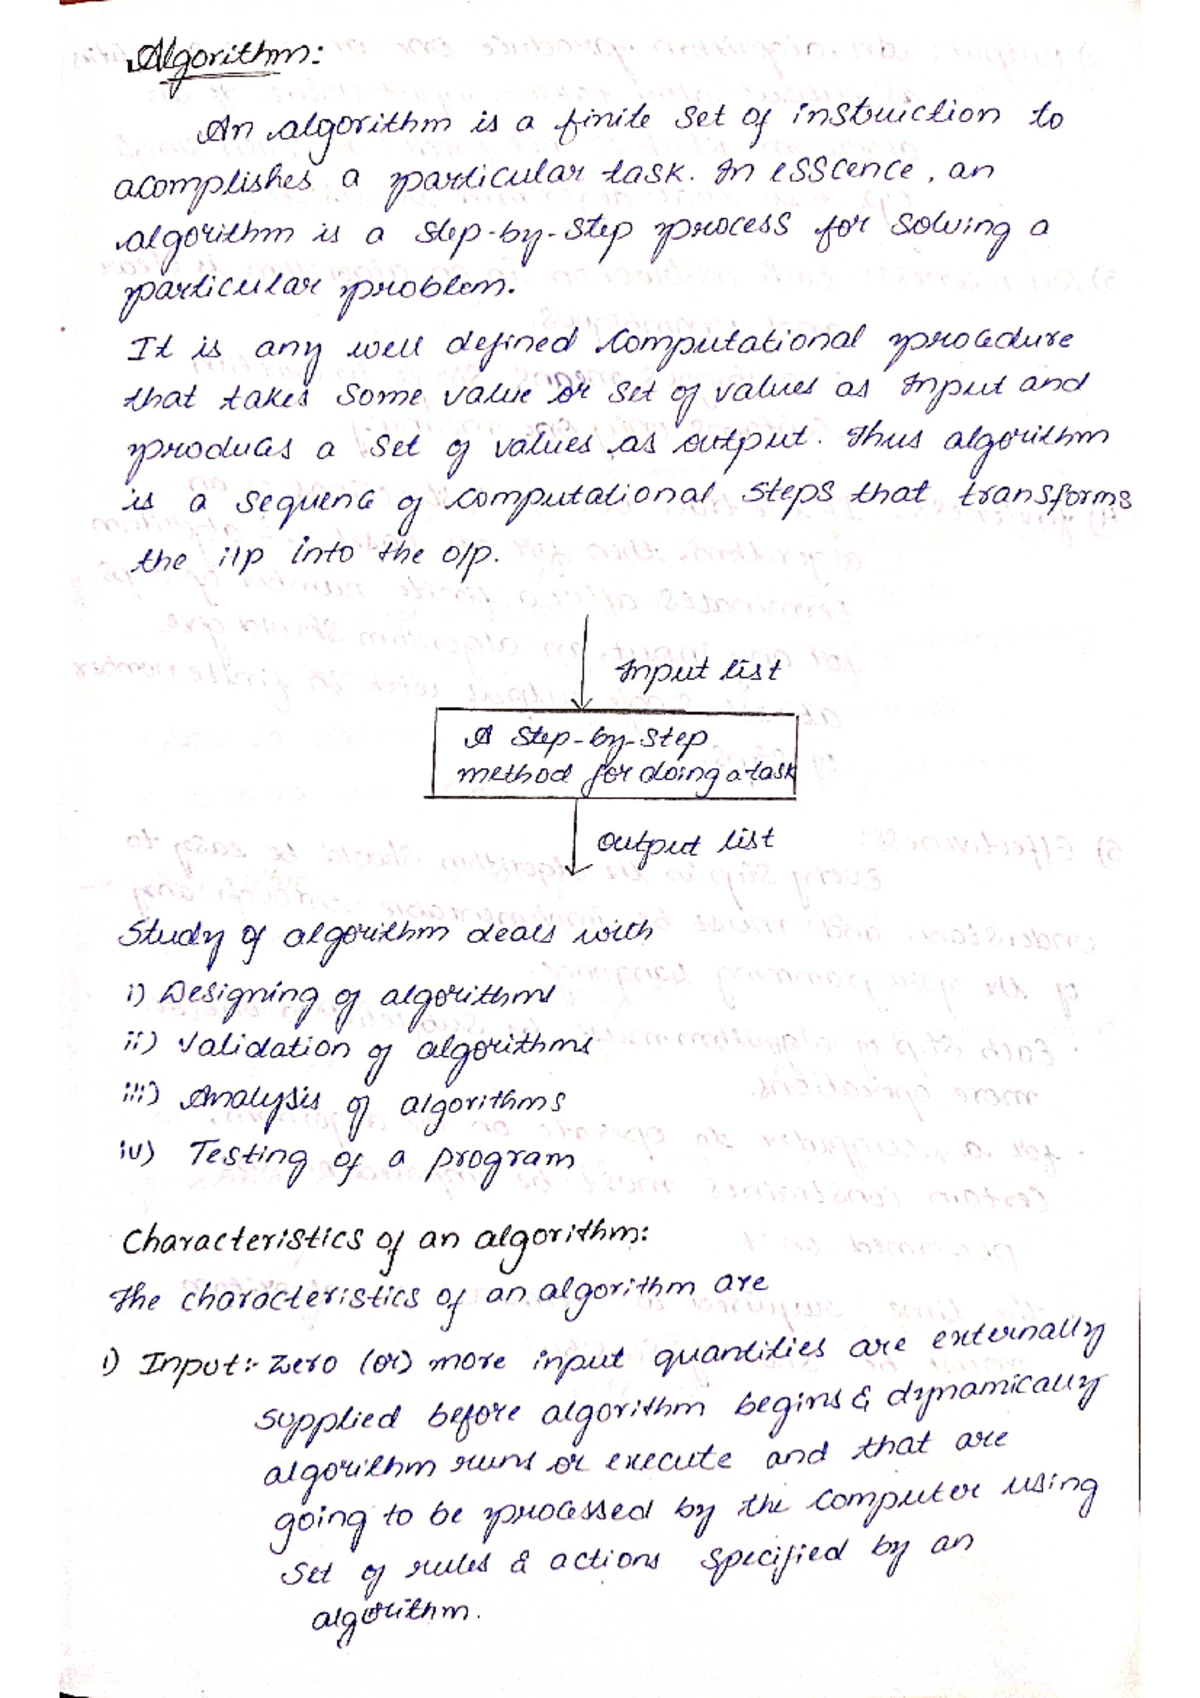 Algorithm:
An algorithm is a finite set of instruction to
acomplishes a particular task. In esscence, an
algorithm is a step-by-step process for solving a
particular problem.
It is any well defined computational procedure
that takes some value or set of values as Input and
produces a set of values as output. Thus algorithm
is a sequence of computational steps that transforms
the i/p into the o/p.
Input list
A step-by-step
method for doing a task
output list
Study of algorithm deals with
i) Designing of algorithms
ii) Validation of algorithms
iii) Analysis of algorithms
iv) Testing of a program
Characteristics of an algorithm:
The characteristics of an algorithm are
i) Input:- Zero (or) more input quantities are externally
supplied before algorithm begins & dynamically
algorithm runs or execute and that are
going to be processed by the computer using
set of rules & actions specified by an
algorithm.